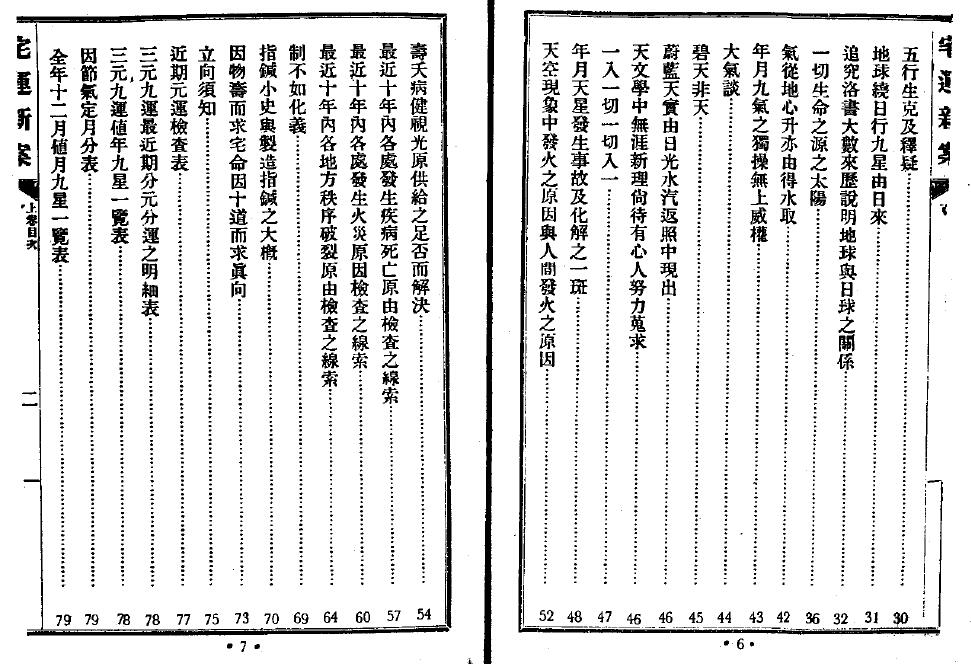 宅運新案
五行生克及釋疑 30
地球繞日行九星由日來 31
追究洛書大數來歷說明地球與日球之關係 32
一切生命之源之太陽 36
氣從地心升亦由得水取 42
年月九氣之獨操無上威權 43
大氣談 44
碧天非天 45
蔚藍天實由日光水汽返照中現出 46
天文學中無涯新理尙待有心人努力蒐求 46
一入一切一切入一 47
年月天星發生事故及化解之一斑 48
天空現象中發火之原因與人間發火之原因 52
•6•
壽夭病健視光原供給之足否而解決 54
最近十年內各處發生疾病死亡原由檢查之線索 57
最近十年內各處發生火災原因檢查之線索 60
最近十年內各地方秩序破裂原由檢查之線索 64
制不如化義 69
指鍼小史與製造指鍼之大槪 70
因物壽而求宅命因十道而求眞向 73
立向須知 75
近期元運檢查表 77
三元九運最近期分元分運之明細表 78
三元九運値年九星一覽表 78
因節氣定月分表 79
全年十二月値月九星一覽表 79
宅運新案
上卷目次
二
•7•